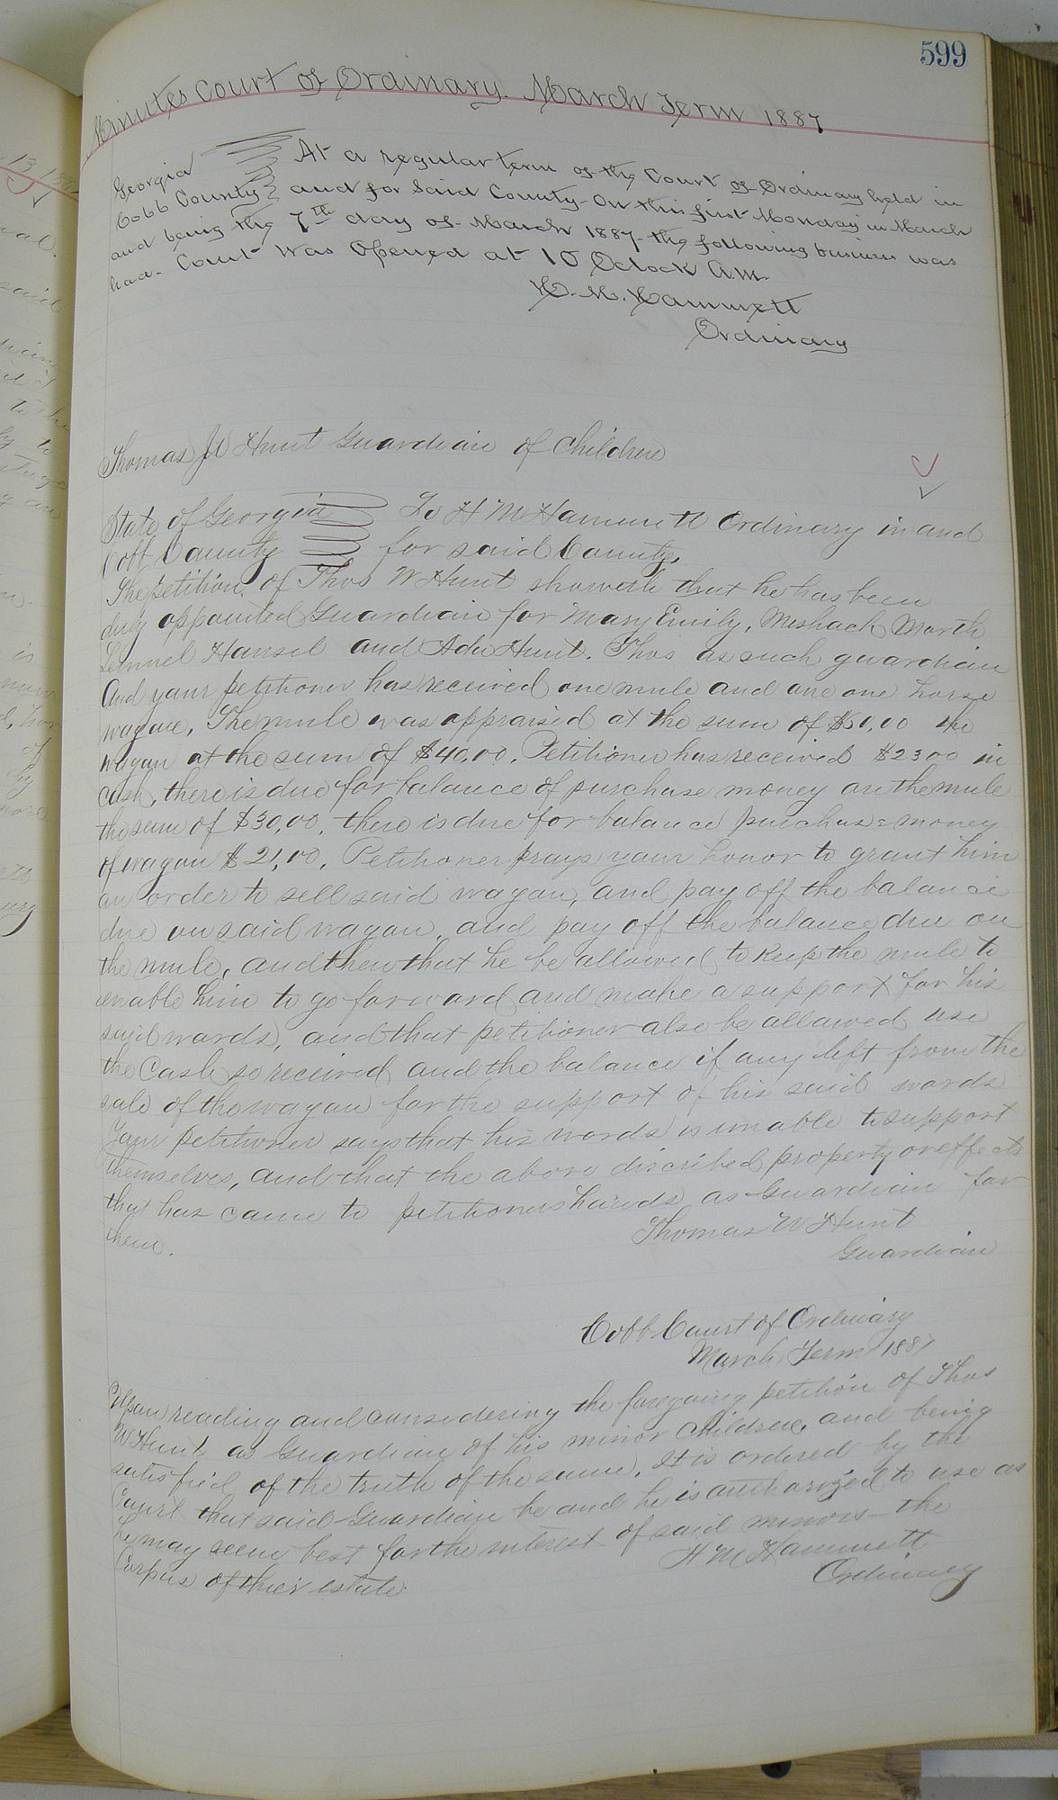 599
Minutes Court of Ordinary. March Term 1887
Georgia At a regular term of the Court of Ordinary held in
Cobb County and for Said County on this first Monday in March
and being the 7th day of March 1887 the following business was
had. Court was Opened at 10 Oclock A.M.
H. M. Hammett
Ordinary
Thomas W Hunt Guardian of Children
State of Georgia To H M Hammett Ordinary in and
Cobb County for said County,
The petition of Thos W Hunt showeth that he has been
duly appointed Guardian for Mary Emily, Meshack March
Lemuel Hansel and Ada Hunt. Thos as such guardian
And your petitioner has received one mule and one one horse
wagon, The mule was appraised at the sum of the
wagon at the sum of $40.00. Petitioner has received $23 00 in
cash, there is due for balance of purchase money on the mule
the sum of $30,00, there is due for balance purchase money
of wagon $21,00, Petitioner prays your honor to grant him
an order to sell said wagon, and pay off the balance
due on said wagon, and pay off the balance due on
the mule, and then that he be allowed to keep the mule to
enable him to go forward and make a support for his
said wards, and that petitioner also be allowed use
the Cash so received and the balance if any left from the
sale of the wagon for the support of his said wards
Your petitioner says that his wards is unable to support
themselves, and that the above discribed property or effects
that has came to petitioners hands as Guardian for
them.
Thomas W Hunt
Guardian
Cobb Court of Ordinary
March Term 1887
Upon reading and considering the foregoing petition of Thos
W Hunt as Guardian of his minor children and being
satisfied of the truth of the same. It is ordered by the
Court that said Guardian be and he is authorized to use as
he may seem best for the interest of said minors the
Corpus of their estate
H M Hammett
Ordinary